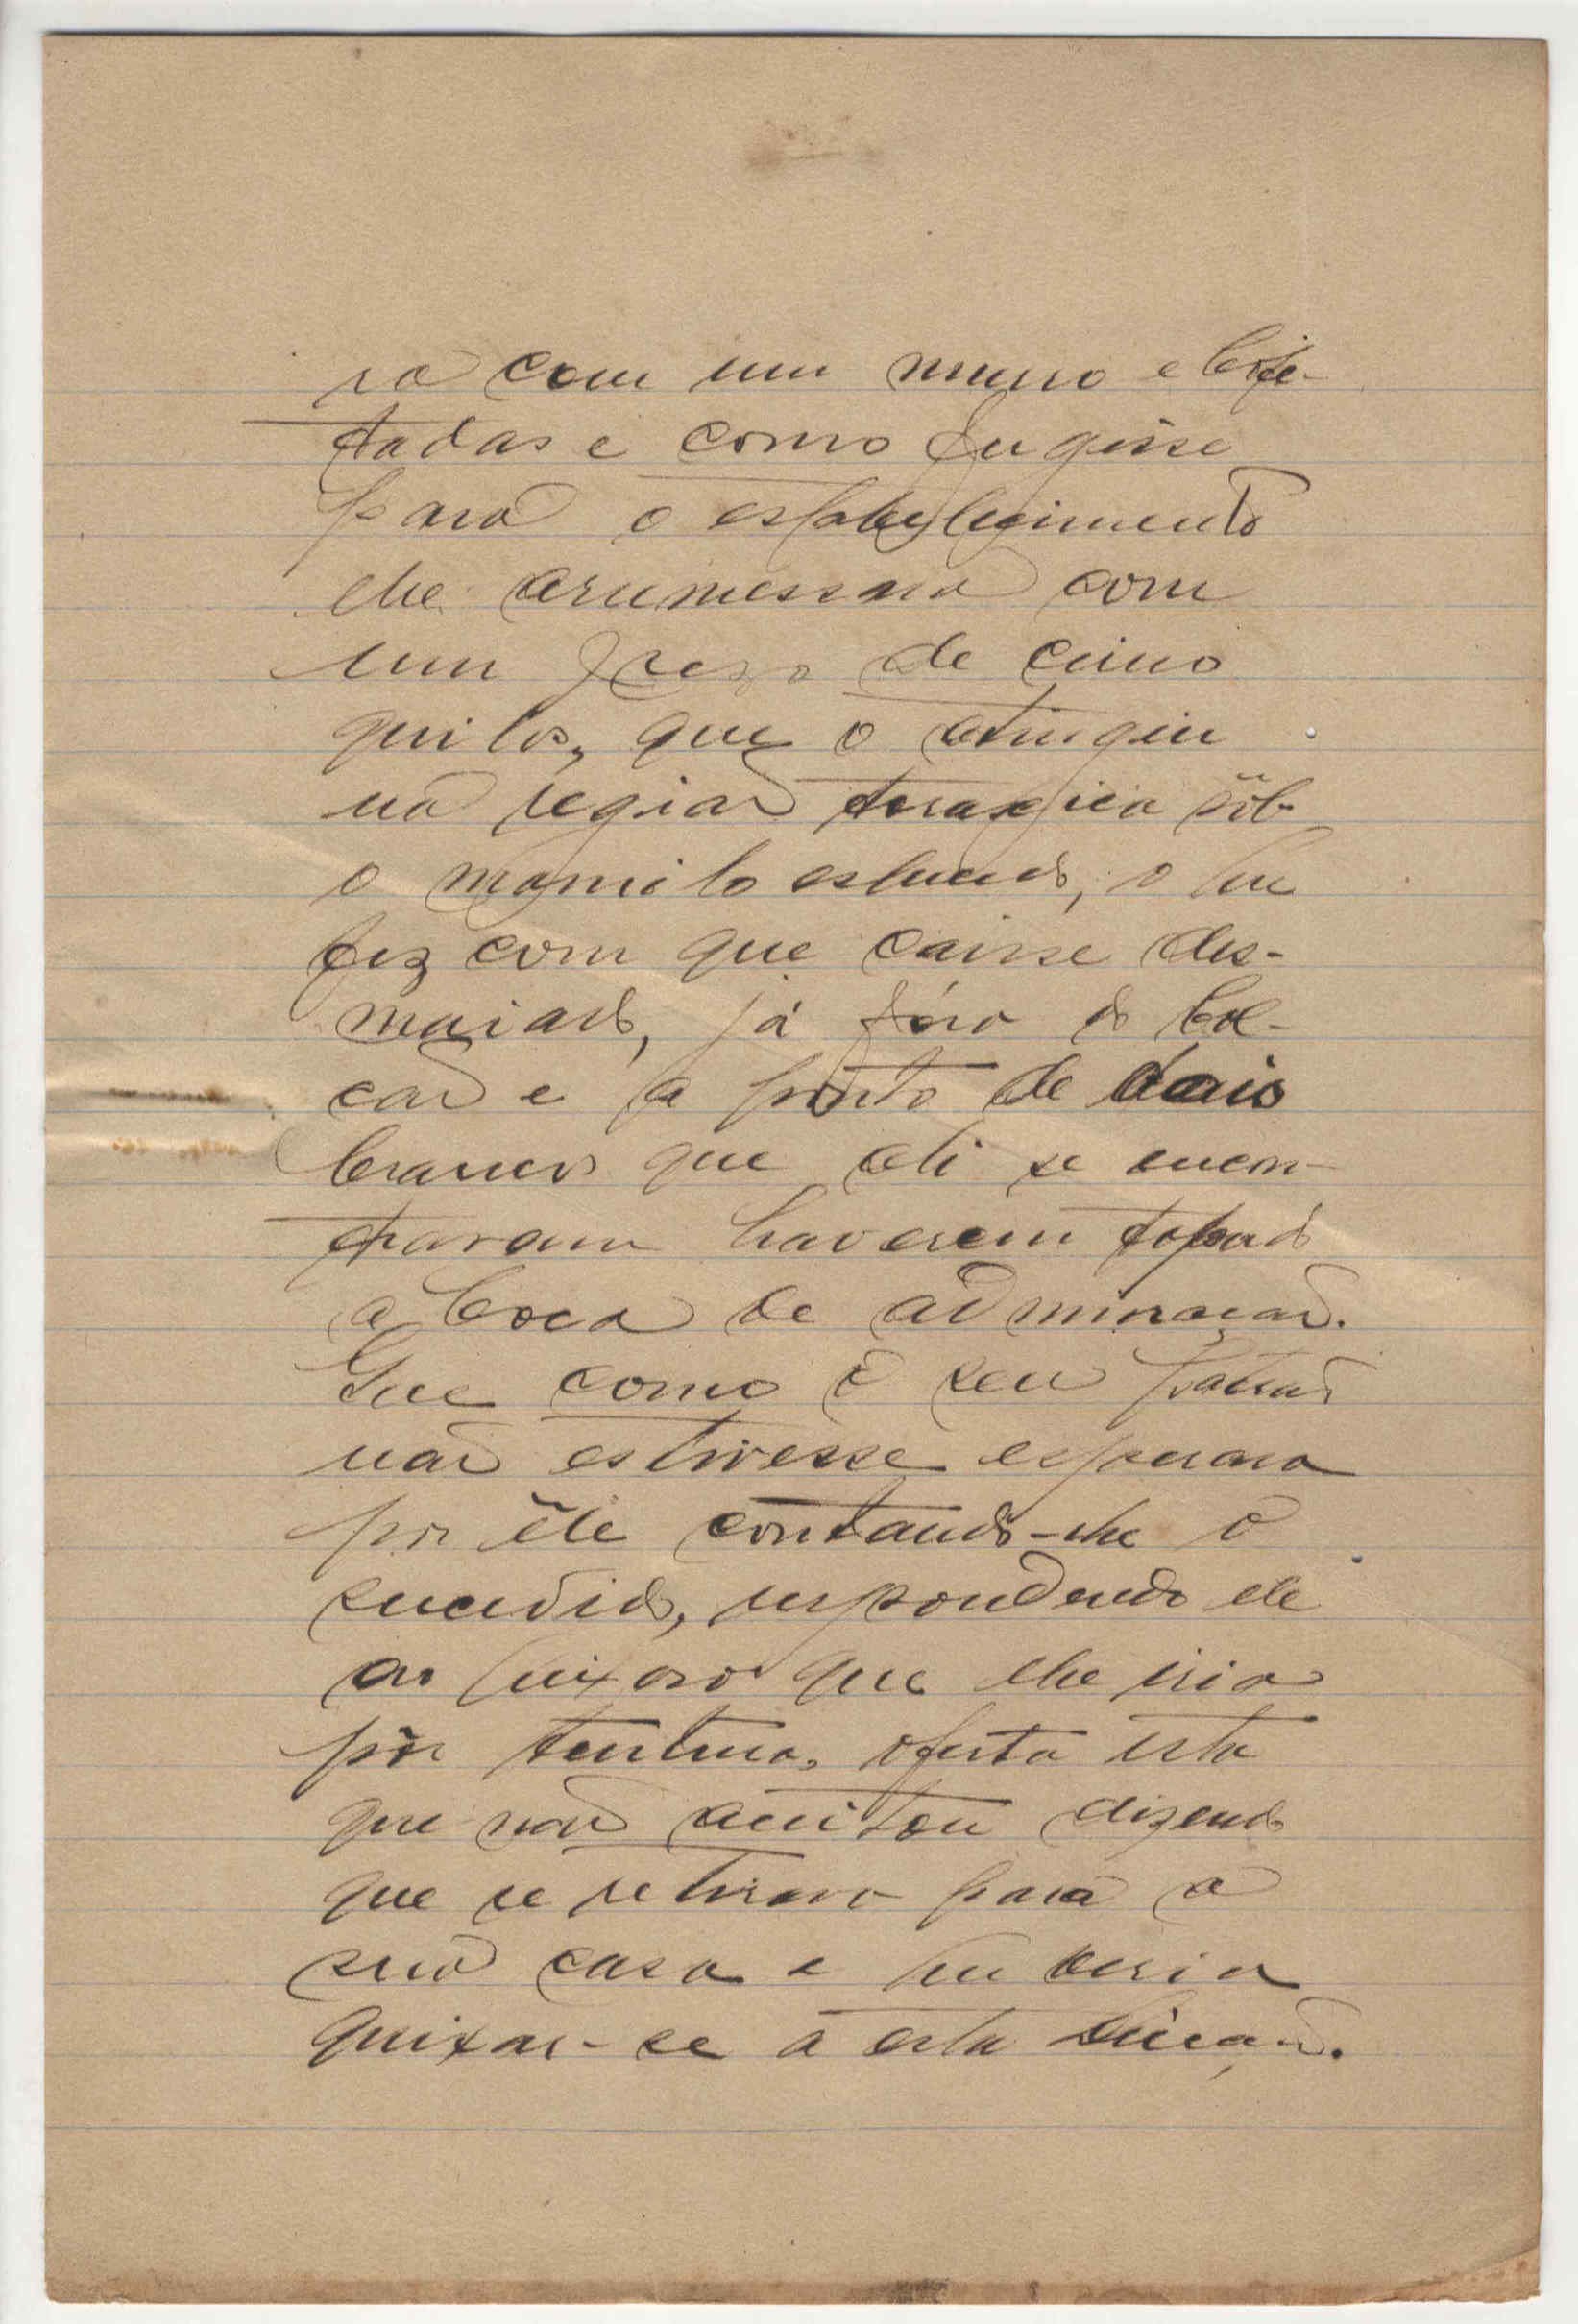 ra com um murro e bofe-
tadas e como fugisse
para o estabelecimento
lhe arremessara com
um peso de cinco
quilos, que o atingiu
na região toraxica sôb
o mamilo esquerdo, o que
fez com que caisse des-
maiado, já fóra do bal-
cão e a ponto de dois
brancos que ali se encon-
travam haverem tapado
a boca de admiração.
Que como o seu patrão
não estivesse esperara
por êle contando-lhe o
sucedido, respondendo ele
ao queixoso que lhe iria
pôr tintura, oferta esta
que não aceitou dizendo
que se retirava para a
sua casa e que viria
queixar-se a esta